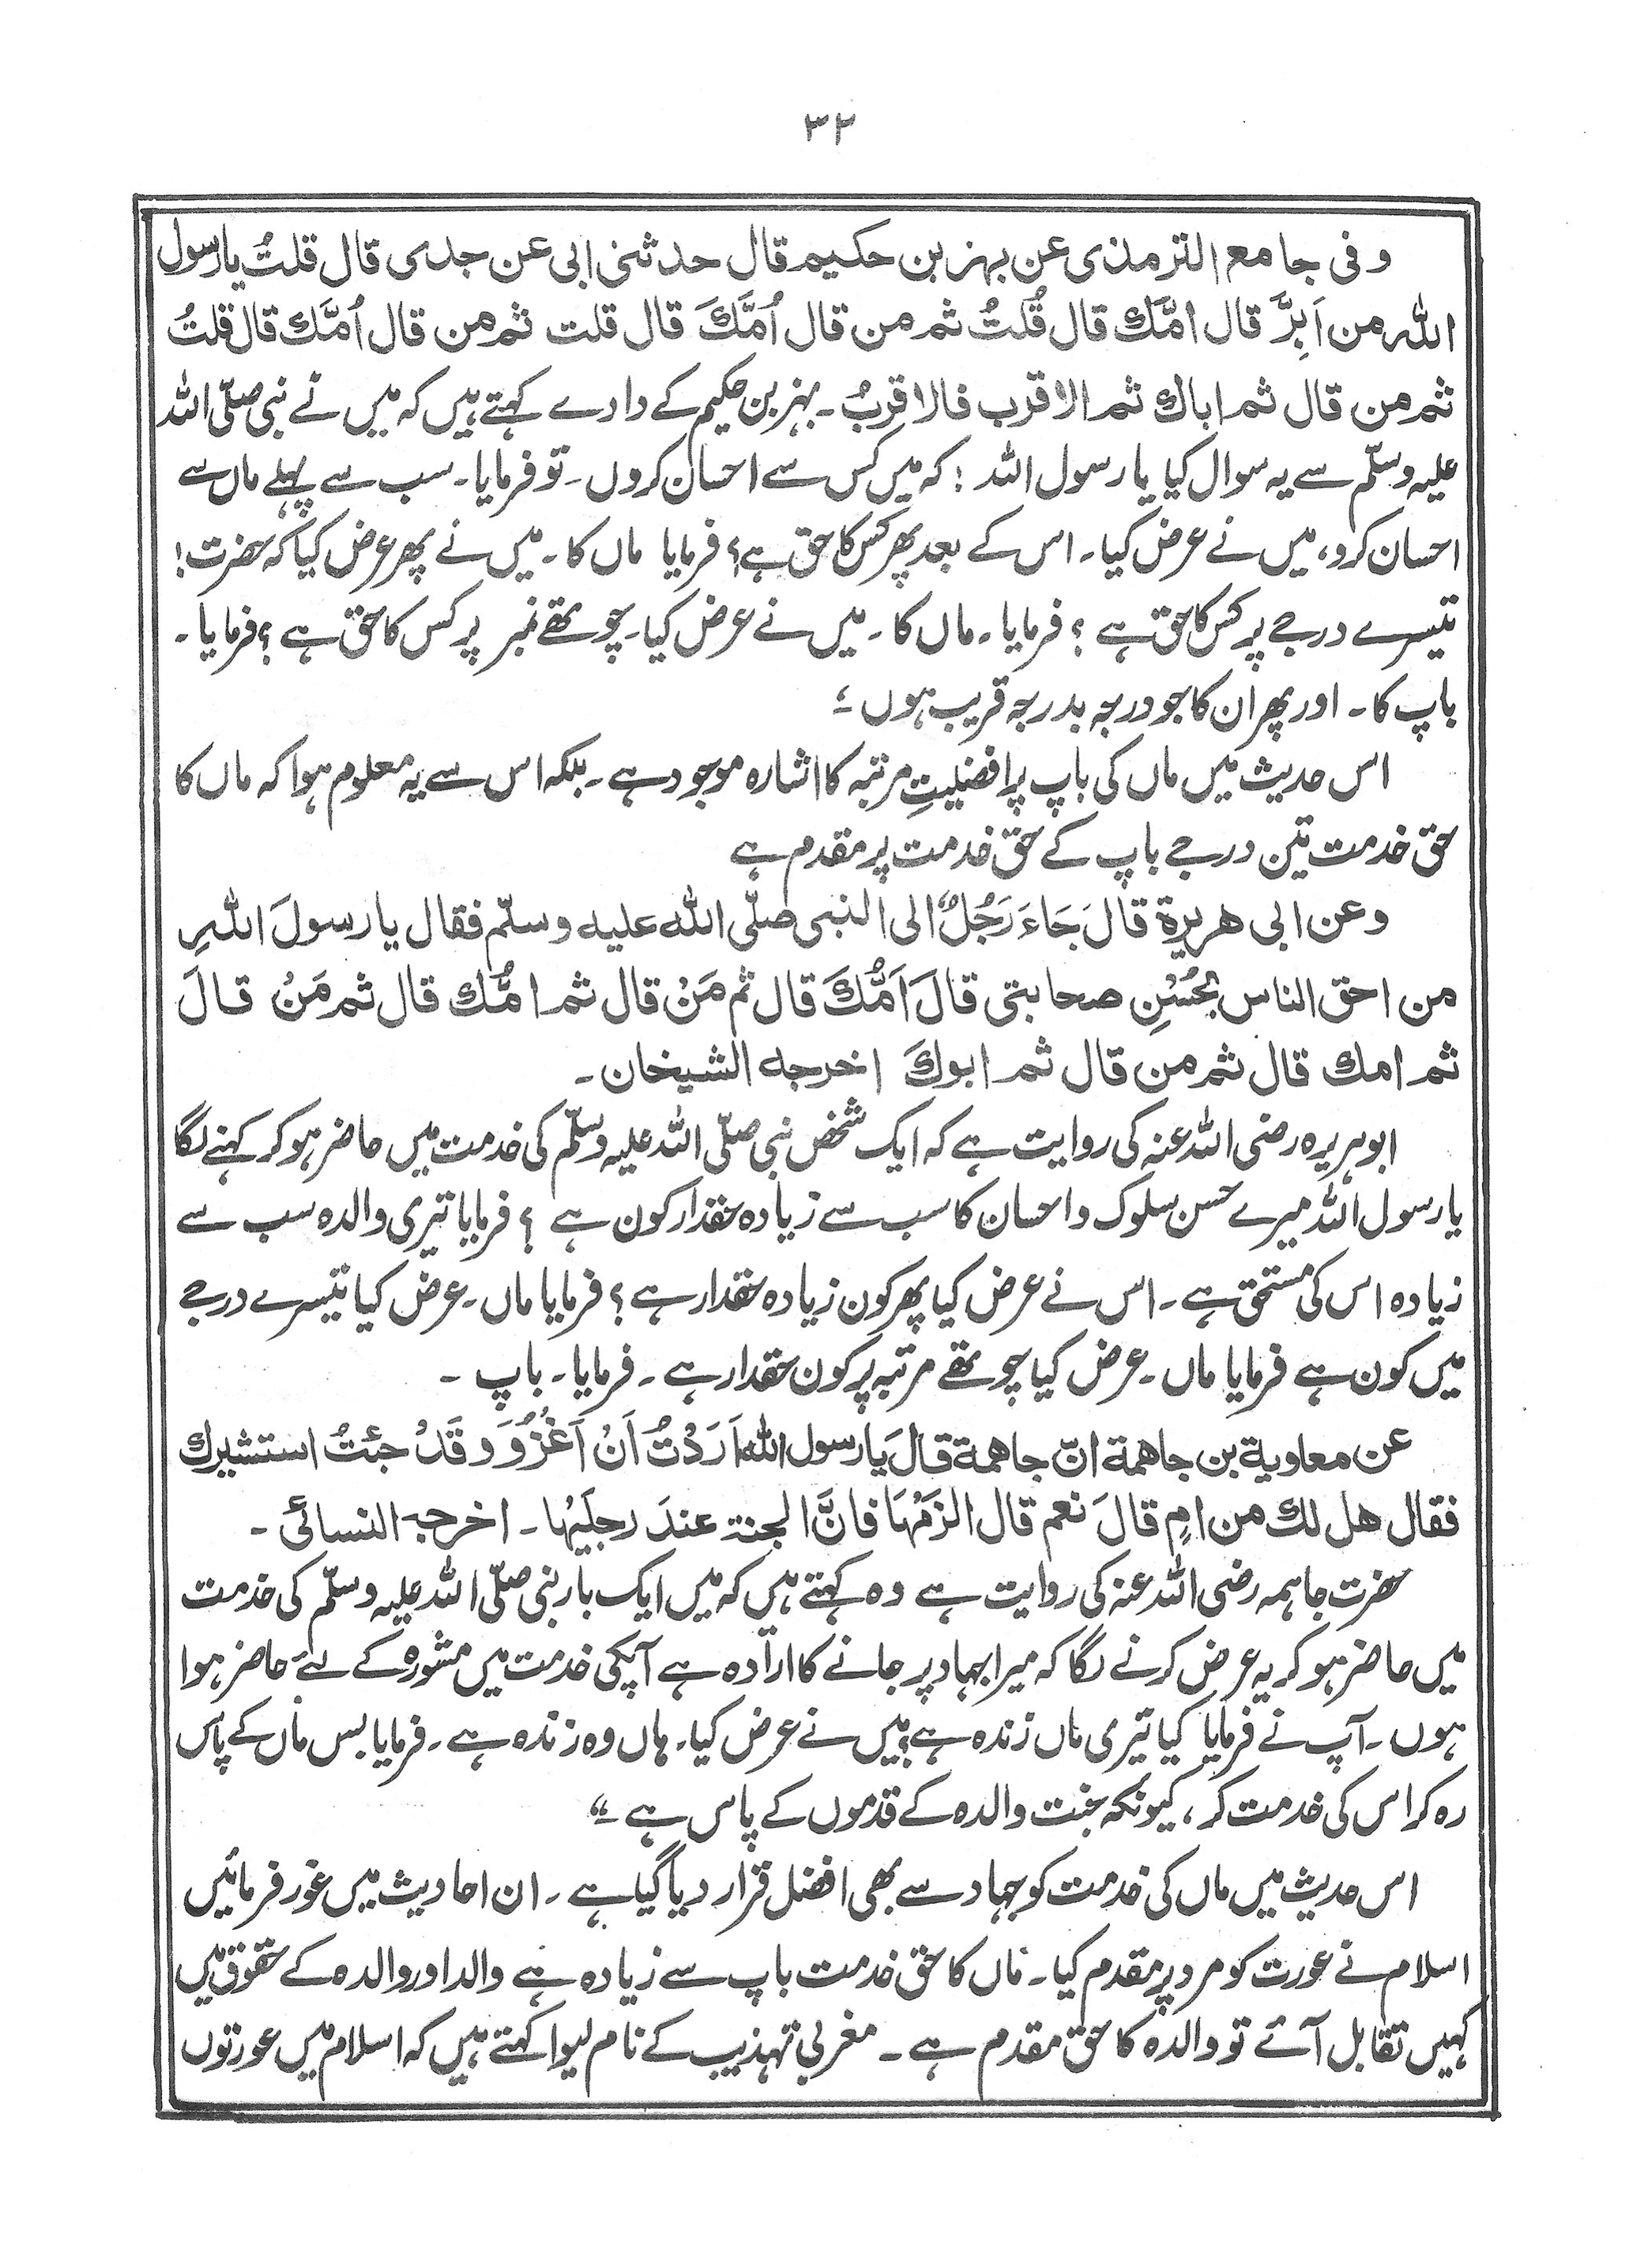 ۳۲
و فی جامع الترمذی عن بہز بن حکیم قال حدثنی ابی عن جدی قال قلتُ یا رسول
اللہ من اَبِرَّ قال امَّك قال قُلتُ ثم من قال اُمَّكَ قال قلت ثم من قال اُمَّك قال قلتُ
ثم من قال ثم اباك ثم الاقرب فالاقربُ ۔ بہز بن حکیم کے دادے کہتے ہیں کہ میں نے نبی صلّی اللہ
علیہ وسلّم سے یہ سوال کیا یا رسول اللہ ! کہ میں کس سے احسان کروں ۔ تو فرمایا ۔ سب سے پہلے ماں سے
احسان کرو، میں نے عرض کیا ۔ اس کے بعد پھر کس کا حق ہے؟ فرمایا ماں کا ۔ میں نے پھر عرض کیا کہ حضرت !
تیسرے درجے پر کس کا حق ہے ؟ فرمایا ۔ ماں کا ۔ میں نے عرض کیا ۔ چوتھے نمبر پر کس کا حق ہے ؟ فرمایا ۔
باپ کا ۔ اور پھر ان کا جو درجہ بدرجہ قریب ہوں ؛
اس حدیث میں ماں کی باپ پر افضلیتِ مرتبہ کا اشارہ موجود ہے ۔ بلکہ اس سے یہ معلوم ہوا کہ ماں کا
حق خدمت تین درجے باپ کے حق خدمت پر مقدم ہے
و عن ابی هریرة قالَ جَاءَ رَجُلٌ الی النبی صلّی اللہ علیہ وسلّم فقال یا رسولَ اللہِ
من احق الناس بحُسْنِ صحابتی قالَ اَمُّكَ قال ثم مَنْ قال ثم امُّك قال ثم مَنْ قالَ
ثم امك قال ثم من قال ثم ابوكَ اخرجہ الشیخان ۔
ابوہریرہ رضی اللہ عنہ کی روایت ہے کہ ایک شخص نبی صلّی اللہ علیہ وسلّم کی خدمت میں حاضر ہو کر کہنے لگا
یا رسول اللہ میرے حسن سلوک و احسان کا سب سے زیادہ حقدار کون ہے ؟ فرمایا تیری والدہ سب سے
زیادہ اس کی مستحق ہے ۔ اس نے عرض کیا پھر کون زیادہ حقدار ہے ؟ فرمایا ماں ۔ عرض کیا تیسرے درجے
میں کون ہے فرمایا ماں ۔ عرض کیا چوتھے مرتبہ پر کون حقدار ہے ۔ فرمایا ۔ باپ ۔
عن معاویة بن جاهمة انّ جاهمة قالَ یا رسول اللہ اَرَدْتُ اَنْ اَغْزُوَ وقَدْ جئتُ استشیرك
فقال هل لك من امٍ قالَ نعم قال الزَمْہَا فانَّ الجنۃ عندَ رجلَیْہا ۔ اخرجہ النسائی ۔
حضرت جاہمہ رضی اللہ عنہ کی روایت ہے وہ کہتے ہیں کہ میں ایک بار نبی صلّی اللہ علیہ وسلّم کی خدمت
میں حاضر ہو کر یہ عرض کرنے لگا کہ میرا جہاد پر جانے کا ارادہ ہے آپکی خدمت میں مشورہ کے لئے حاضر ہوا
ہوں ۔ آپ نے فرمایا کیا تیری ماں زندہ ہے؟ میں نے عرض کیا ۔ ہاں وہ زندہ ہے ۔ فرمایا بس ماں کے پاس
رہ کر اس کی خدمت کر ، کیونکہ جنّت والدہ کے قدموں کے پاس ہے ۔“
اس حدیث میں ماں کی خدمت کو جہاد سے بھی افضل قرار دیا گیا ہے ۔ ان احادیث میں غور فرمائیں
اسلام نے عورت کو مرد پر مقدم کیا ۔ ماں کا حق خدمت باپ سے زیادہ ہے والد اور والدہ کے حقوق میں
کہیں تقابل آئے تو والدہ کا حق مقدم ہے ۔ مغربی تہذیب کے نام لیوا کہتے ہیں کہ اسلام میں عورتوں